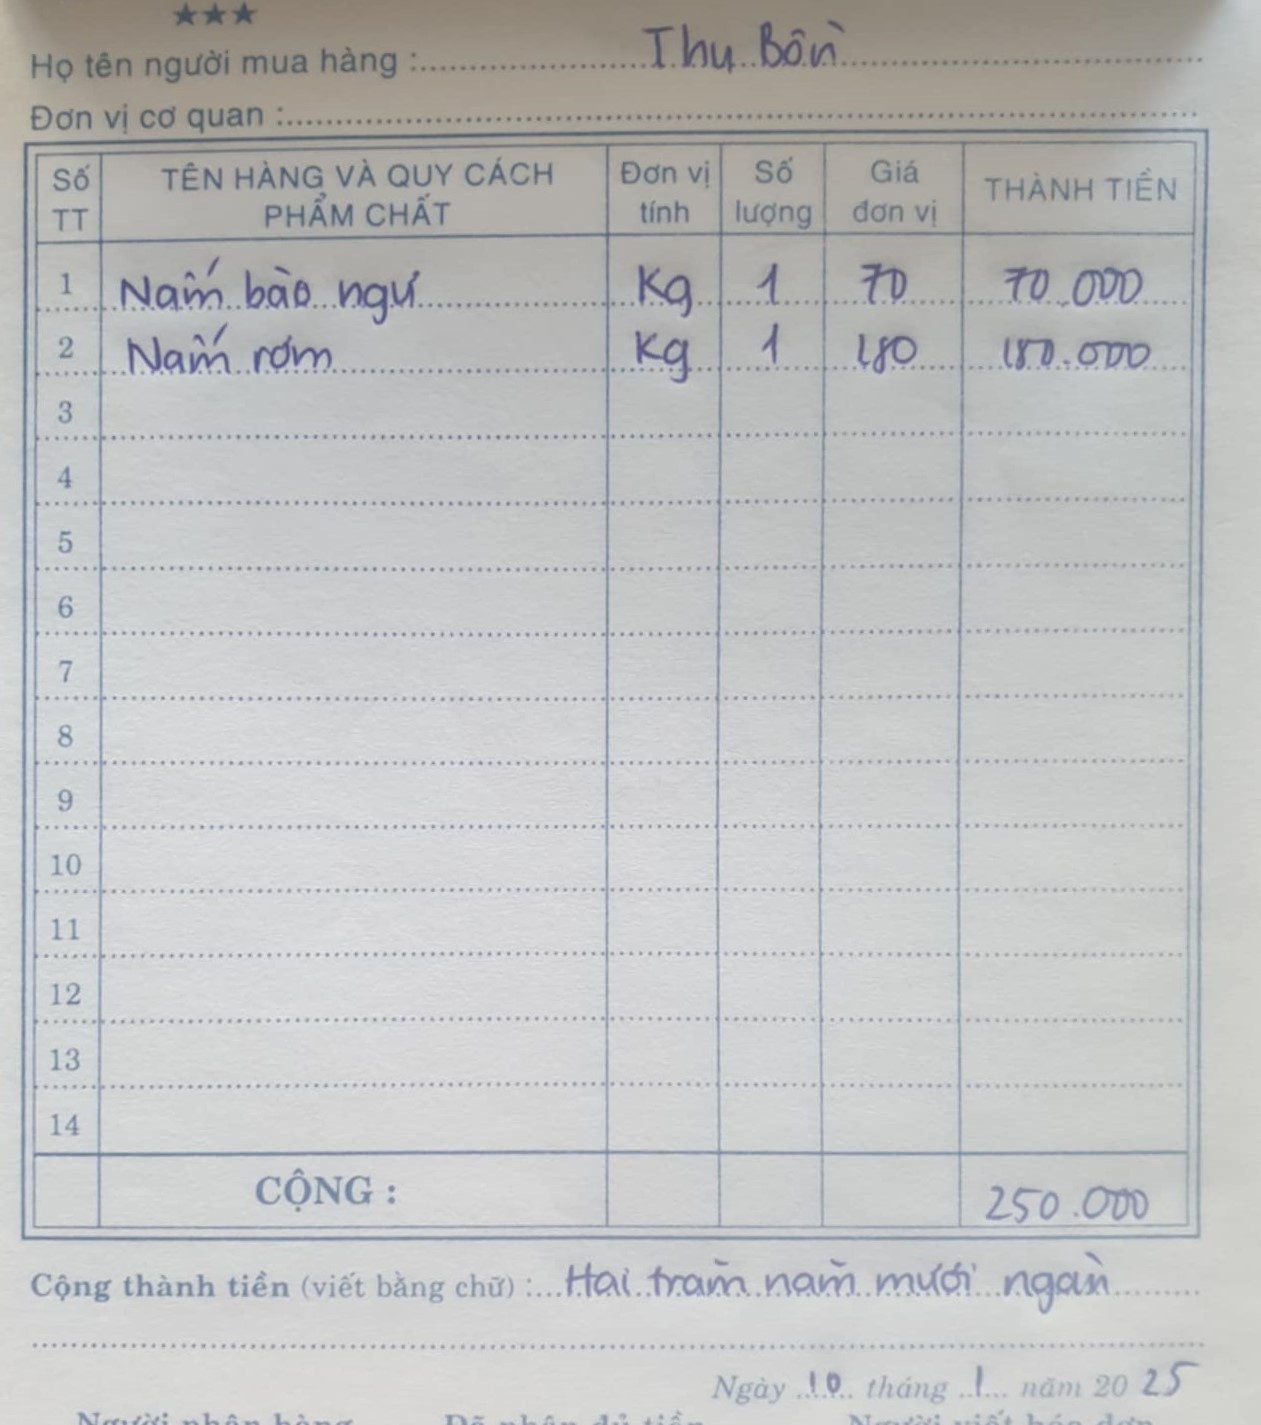 ★★★
Họ tên người mua hàng : Thu Bồn
Đơn vị cơ quan :
Số TT TÊN HÀNG VÀ QUY CÁCH PHẨM CHẤT Đơn vị tính Số lượng Giá đơn vị THÀNH TIỀN
1 Nấm bào ngư Kg 1 70 70.000
2 Nấm rơm Kg 1 180 180.000
3
4
5
6
7
8
9
10
11
12
13
14
CỘNG : 250.000
Cộng thành tiền (viết bằng chữ) : Hai trăm năm mươi ngàn
Ngày 10 tháng 1 năm 2025
Người nhận hàng Đã nhận đủ tiền Người viết hóa đơn